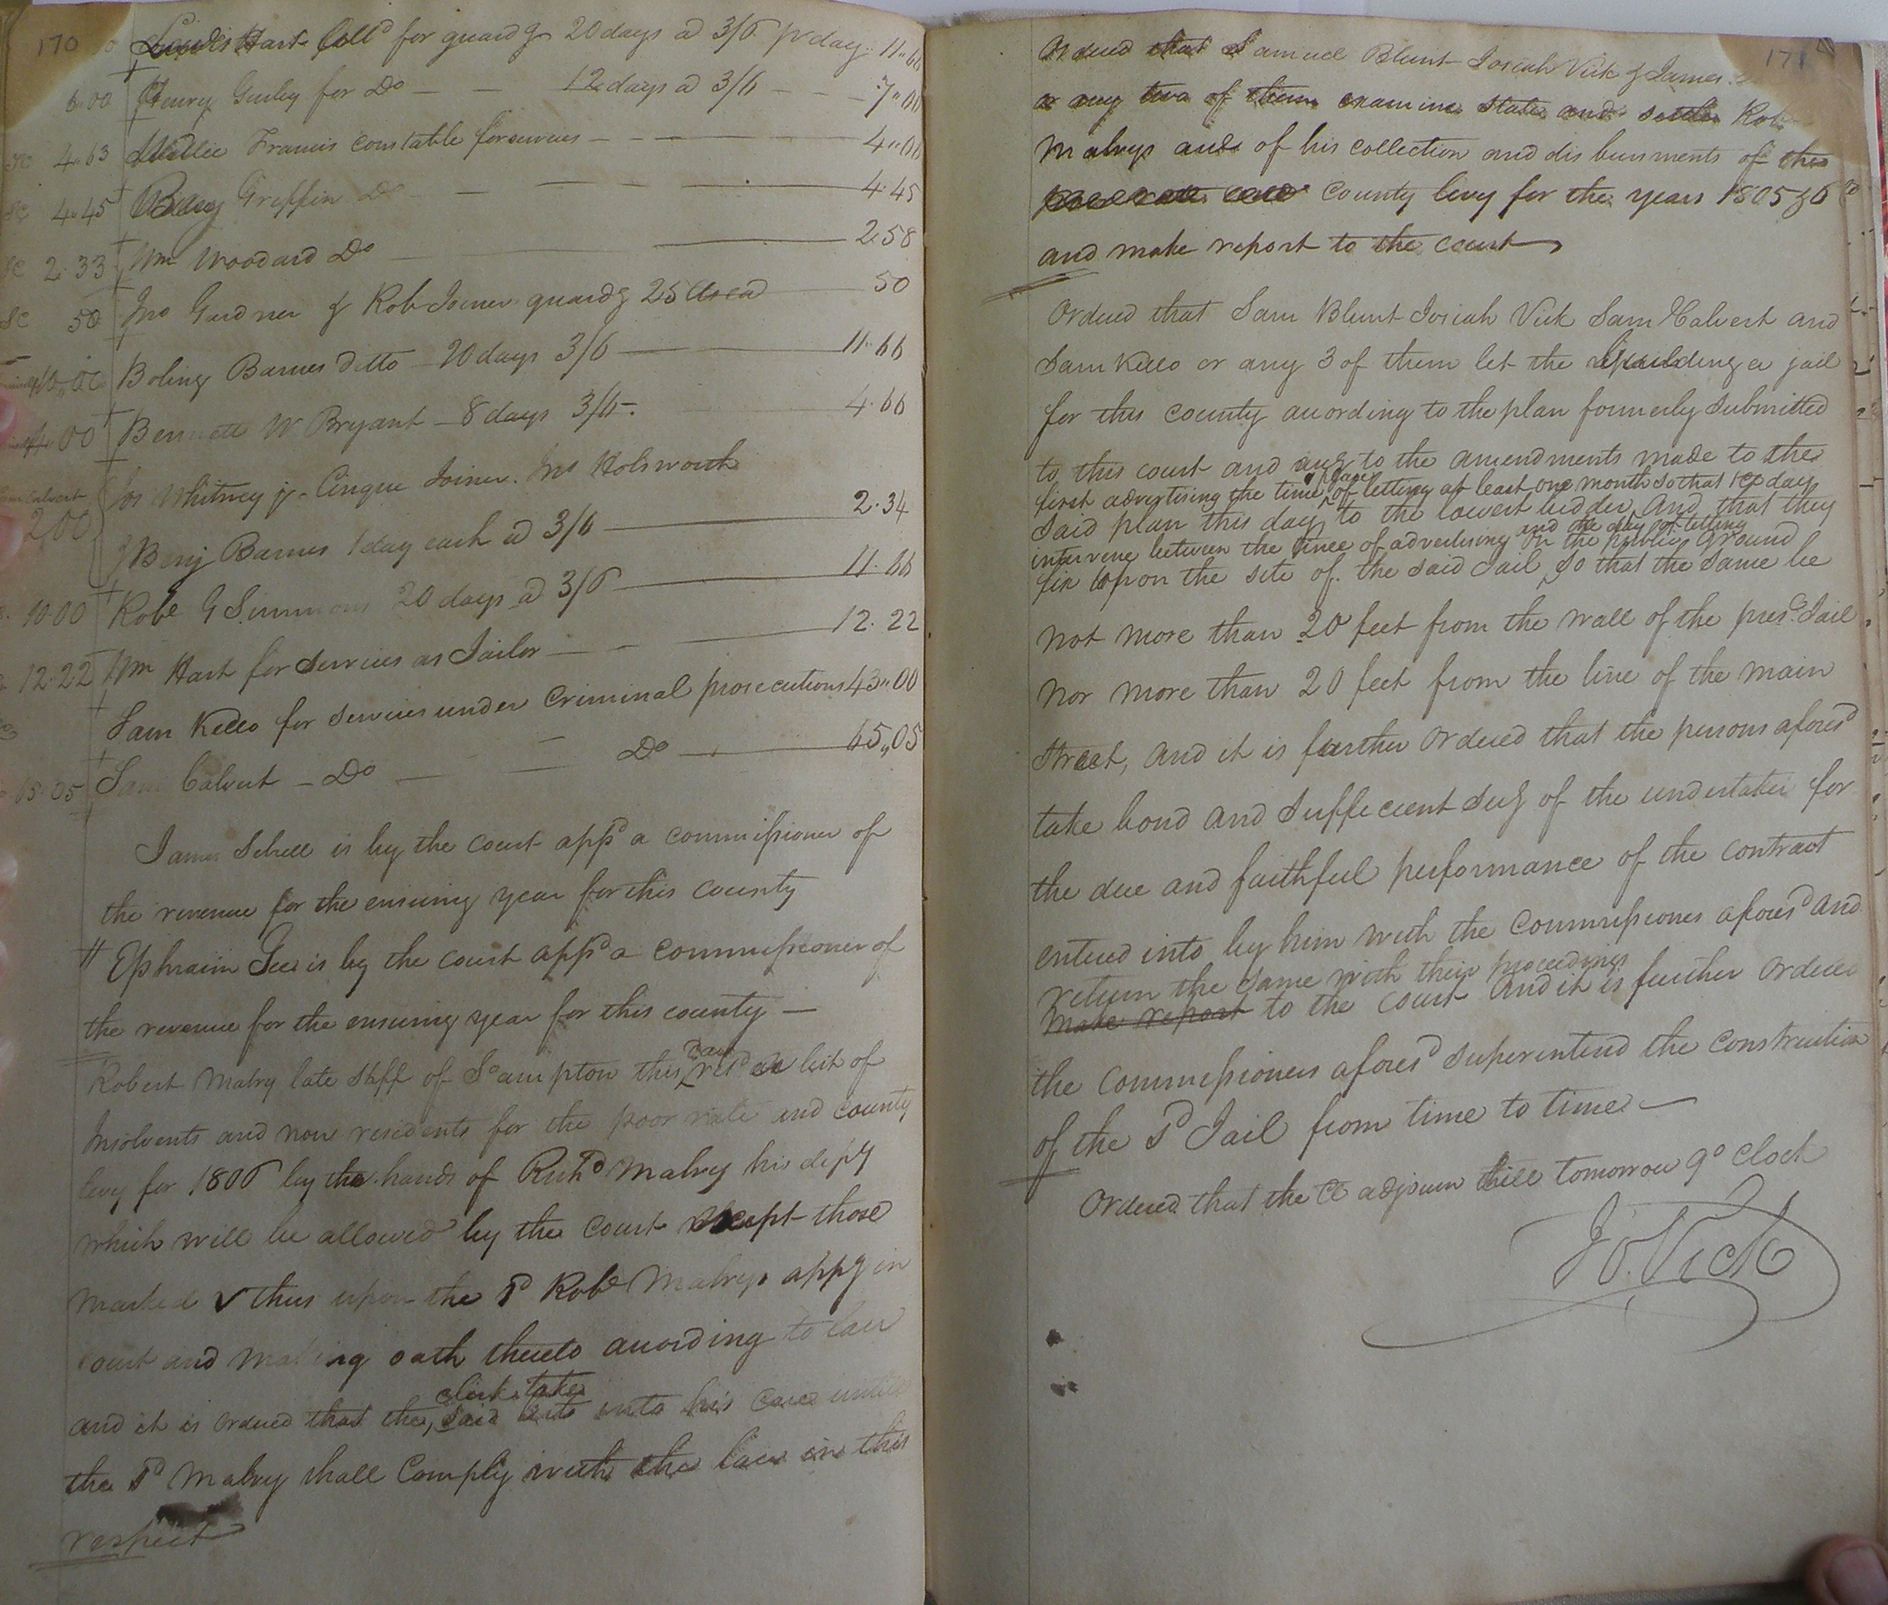 170
Hart Coll^d for guard^g 20 days @ 3/6 pr day 11.66
6.00 Henry Gurley for Do — — 12 days @ 3/6 — — — 7.00
4.63 Francis constable for services — — — 4.66
4.45 Griffin Do — — — 4.45
2.33 Wm Woodard Do — 2.58
50 Jno Gardner & Rob Joiner guard^g 25 each 50
Boling Barnes ditto — 20 days 3/6 — 11.66
Bennett W. Bryant — 8 days 3/6 — 4.66
Jos Whitney jr. Cinque Joiner. Jno Holsworth
2.00 & Benj Barnes 1 day each @ 3/6 — 2.34
10.00 Robt G Simmons 20 days @ 3/6 — 11.66
12.22 Wm Hart for services as Jailor — — 12.22
Sam Kello for services under criminal prosecutions 43.00
65.05 Sam Calvert — Do — — Do — 65.05
James Sebrell is by the court app^d a commissioner of
the revenue for the ensuing year for this county
Ephraim Gee is by the court app^d a commissioner of
the revenue for the ensuing year for this county —
day
Robert Malry late Shff of S^oampton this ret^d list of
Insolvents and non residents for the poor rate and county
levy for 1806 by the hands of Rich^d Malry his dep^y
which will be allowed by the court except those
marked ✓ thus upon the s^d Rob^t Malrys app^g in
court and making oath thereto according to law
clerk take
and it is ordered that the said lists into his care until
the s^d Malry shall comply with the law in this
respect
171
Ordered that Samuel Blunt Josiah Vick & James
or any two of them examine state and settle Rob
Malrys of his collection and disbursments of the
County levy for the years 1805 & 6
and make report to the court
Ordered that Sam Blunt Josiah Vick Sam Calvert and
Sam Kello or any 3 of them let the building a jail
for this county according to the plan formerly submitted
to this court and to the amendments made to the
first advertising the time & place of letting at least one month so that 10 days
said plan this day to the lowest bidder, and that they
intervene between the time of advertising and the day of letting
fix upon the site of the said Jail on the public ground so that the same be
not more than 20 feet from the wall of the pres^t Jail
nor more than 20 feet from the line of the main
street, and it is further ordered that the persons afores^d
take bond and sufficient of the undertaker for
the due and faithful performance of the contract
entered into by him with the commissioners afores^d and
return the same with their proceedings
make report to the court and it is further ordered
the commissioners afores^d superintend the construction
of the s^d Jail from time to time —
Ordered that the Ct adjourn till tomorrow 9 o Clock
Jo. Vick